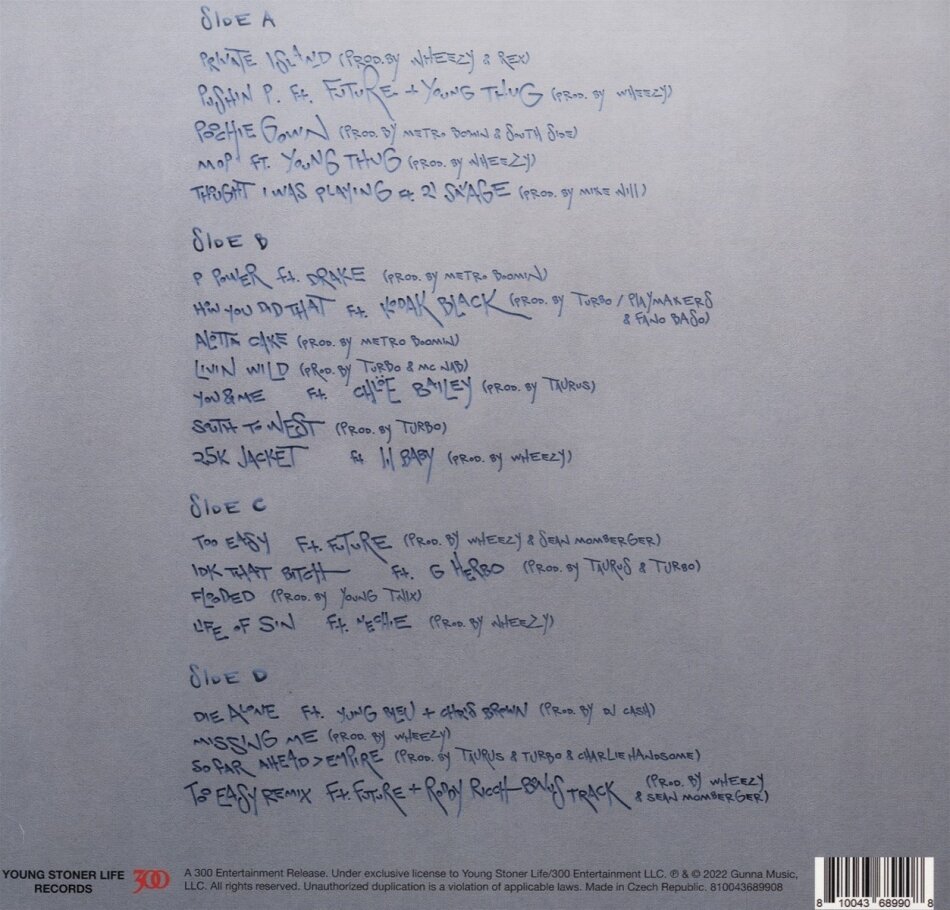 SIDE A
PRIVATE ISLAND (PROD. BY WHEEZY & REX)
PUSHIN P. Ft. FUTURE + YOUNG THUG (PROD. BY WHEEZY)
POOCHIE GOWN (PROD. BY METRO BOMIN & SOUTH SIDE)
MOP FT. YOUNG THUG (PROD. BY WHEEZY)
THOUGHT I WAS PLAYING Ft. 21 SAVAGE (PROD. BY MIKE Will)
SIDE B
P POWER ft. DRAKE (PROD. BY METRO BOOMIN)
HOW YOU DID THAT Ft. KODAK BLACK (PROD. BY TURBO / PLAYMAKERS
& FANO BASO)
ALOTTA CAKE (PROD. BY METRO BOOMIN)
LIVIN WILD (PROD. BY TURBO & MC NAB)
YOU & ME Ft. CHLÖE BAILEY (PROD. BY TAURUS)
SOUTH TO WEST (PROD. BY TURBO)
25K JACKET ft lil BABY (PROD. BY WHEEZY)
SIDE C
TOO EASY Ft. FUTURE (PROD. BY WHEEZY & SEAN MOMBERGER)
IDK THAT BITCH Ft. G HERBO (PROD. BY TAURUS & TURBO)
FLOODED (PROD. BY YOUNG TWIX)
LIFE OF SIN Ft. NECHIE (PROD. BY WHEEZY)
SIDE D
DIE ALONE Ft. YUNG BLEU + CHRIS BROWN (PROD. BY DJ CASH)
MISSING ME (PROD. BY WHEEZY)
SO FAR AHEAD > EMPIRE (PROD. BY TAURUS & TURBO & CHARLIE HANDSOME)
TOO EASY REMIX Ft. FUTURE + RODDY RICCH BONUS TRACK (PROD. BY WHEEZY
& SEAN MOMBERGER)
YOUNG STONER LIFE
RECORDS
300
A 300 Entertainment Release. Under exclusive license to Young Stoner Life/300 Entertainment LLC. ℗ & © 2022 Gunna Music,
LLC. All rights reserved. Unauthorized duplication is a violation of applicable laws. Made in Czech Republic. 810043689908
8 10043 68990 8